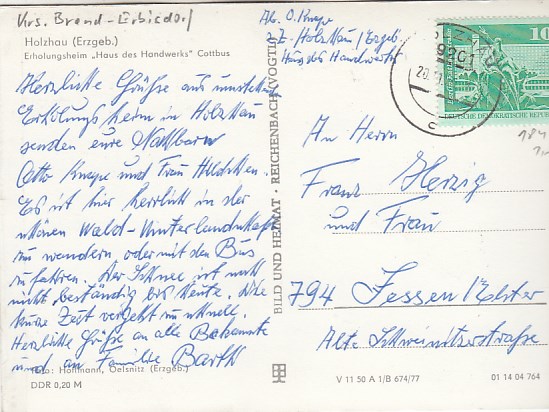 Krs. Brand-Erbisdorf
Holzhau (Erzgeb.)
Erholungsheim „Haus des Handwerks" Cottbus
Herzliche Grüße aus unserem
Erholungsheim in Holzhau
senden eure Nachbarn
Otto Knepe und Frau
Es ist hier herrlich in der
schönen Wald-Winterlandschaft
zu wandern, oder mit den Bus
zu fahren. Der Schnee ist noch
nicht beständig bis heute. Die
kurze Zeit vergeht so schnell.
Herzliche Grüße an alle Bekannte
und an Familie Barth
Foto: Hoffmann, Oelsnitz (Erzgeb.)
DDR 0,20 M
BILD UND HEIMAT · REICHENBACH (VOGTL)
Ab. O. Knepe
z.Z. Holzhau/Erzgeb.
Haus des Handwerks
9201
20.
c
10
DEUTSCHE DEMOKRATISCHE REPUBLIK
184
An Herrn
Franz Herzig
und Frau
794 Jessen/Elster
Alte Schweinitzerstraße
V 11 50 A 1/B 674/77
01 14 04 764